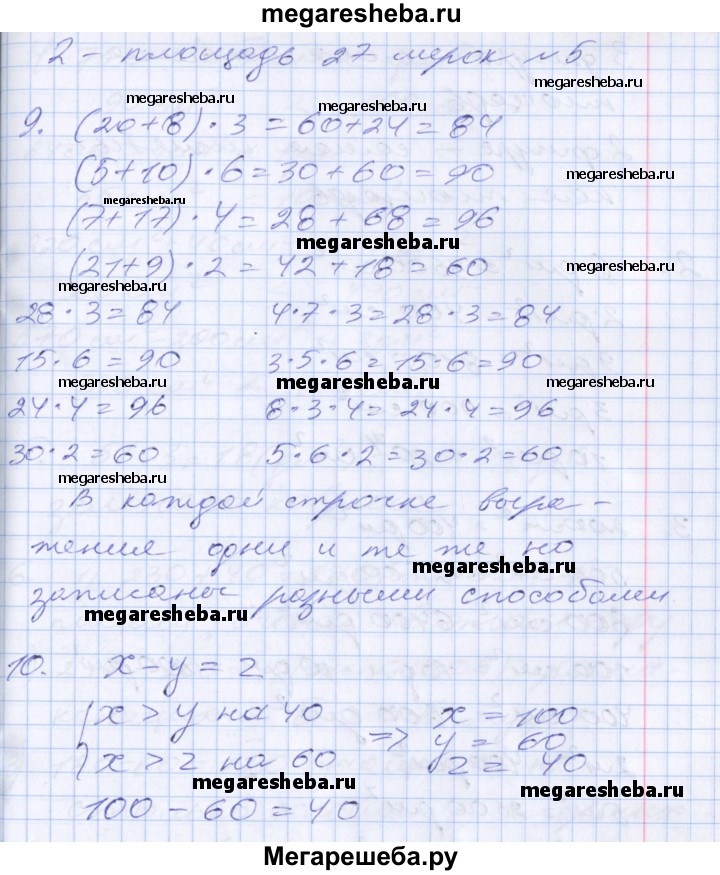 megaresheba.ru
2 – площадь 27 мерок №5
megaresheba.ru megaresheba.ru
9. (20+8)·3=60+24=84
(5+10)·6=30+60=90
megaresheba.ru
megaresheba.ru
(7+17)·4=28+68=96
megaresheba.ru
(21+9)·2=42+18=60
megaresheba.ru
28·3=84 4·7·3=28·3=84
megaresheba.ru
15·6=90 3·5·6=15·6=90
megaresheba.ru megaresheba.ru megaresheba.ru
24·4=96 8·3·4=24·4=96
30·2=60 5·6·2=30·2=60
megaresheba.ru
В каждой строчке выра-
жения одни и те же но
megaresheba.ru
записаны разными способами
megaresheba.ru
10. x–y=z
x > y на 40 x=100
=> y=60
x > z на 60 z=40
megaresheba.ru megaresheba.ru
100–60=40
Мегарешеба.ру